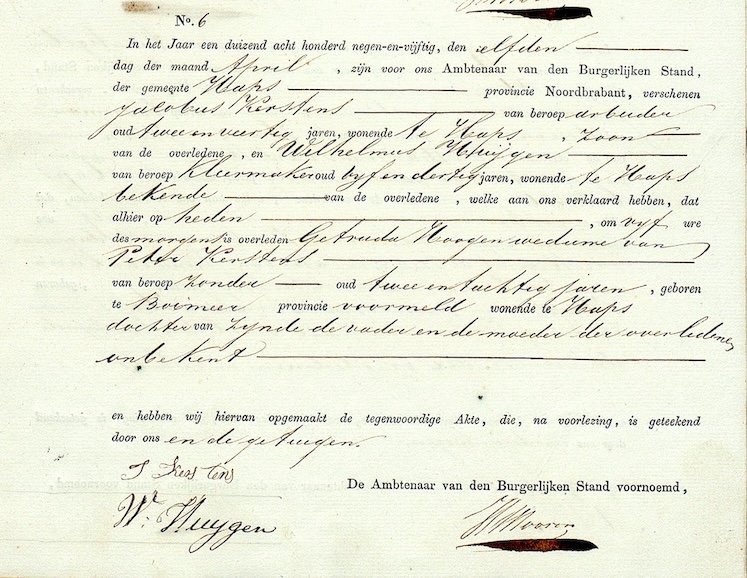 No. 6
In het Jaar een duizend acht honderd negen-en-vijftig, den elfden
dag der maand April, zijn voor ons Ambtenaar van den Burgerlijken Stand,
der gemeente Haps provincie Noordbrabant, verschenen
Jacobus Kerstens van beroep arbeider
oud twee en veertig jaren, wonende te Haps, Zoon
van de overledene, en Wilhelmus Huijgen
van beroep Kleermaker oud vyf en dertig jaren, wonende te Haps
bekende van de overledene, welke aan ons verklaard hebben, dat
alhier op heden, om vyf ure
des morgens is overleden Getruda Hoogen weduwe van
Peter Kerstens
van beroep zonder oud twee en tachtig jaren, geboren
te Boxmeer provincie voormeld wonende te Haps
dochter van Zynde de vader en de moeder der overledene
onbekent
en hebben wij hiervan opgemaakt de tegenwoordige Akte, die, na voorlezing, is geteekend
door ons en de getuigen.
J Kerstens
De Ambtenaar van den Burgerlijken Stand voornoemd,
W. Huygen